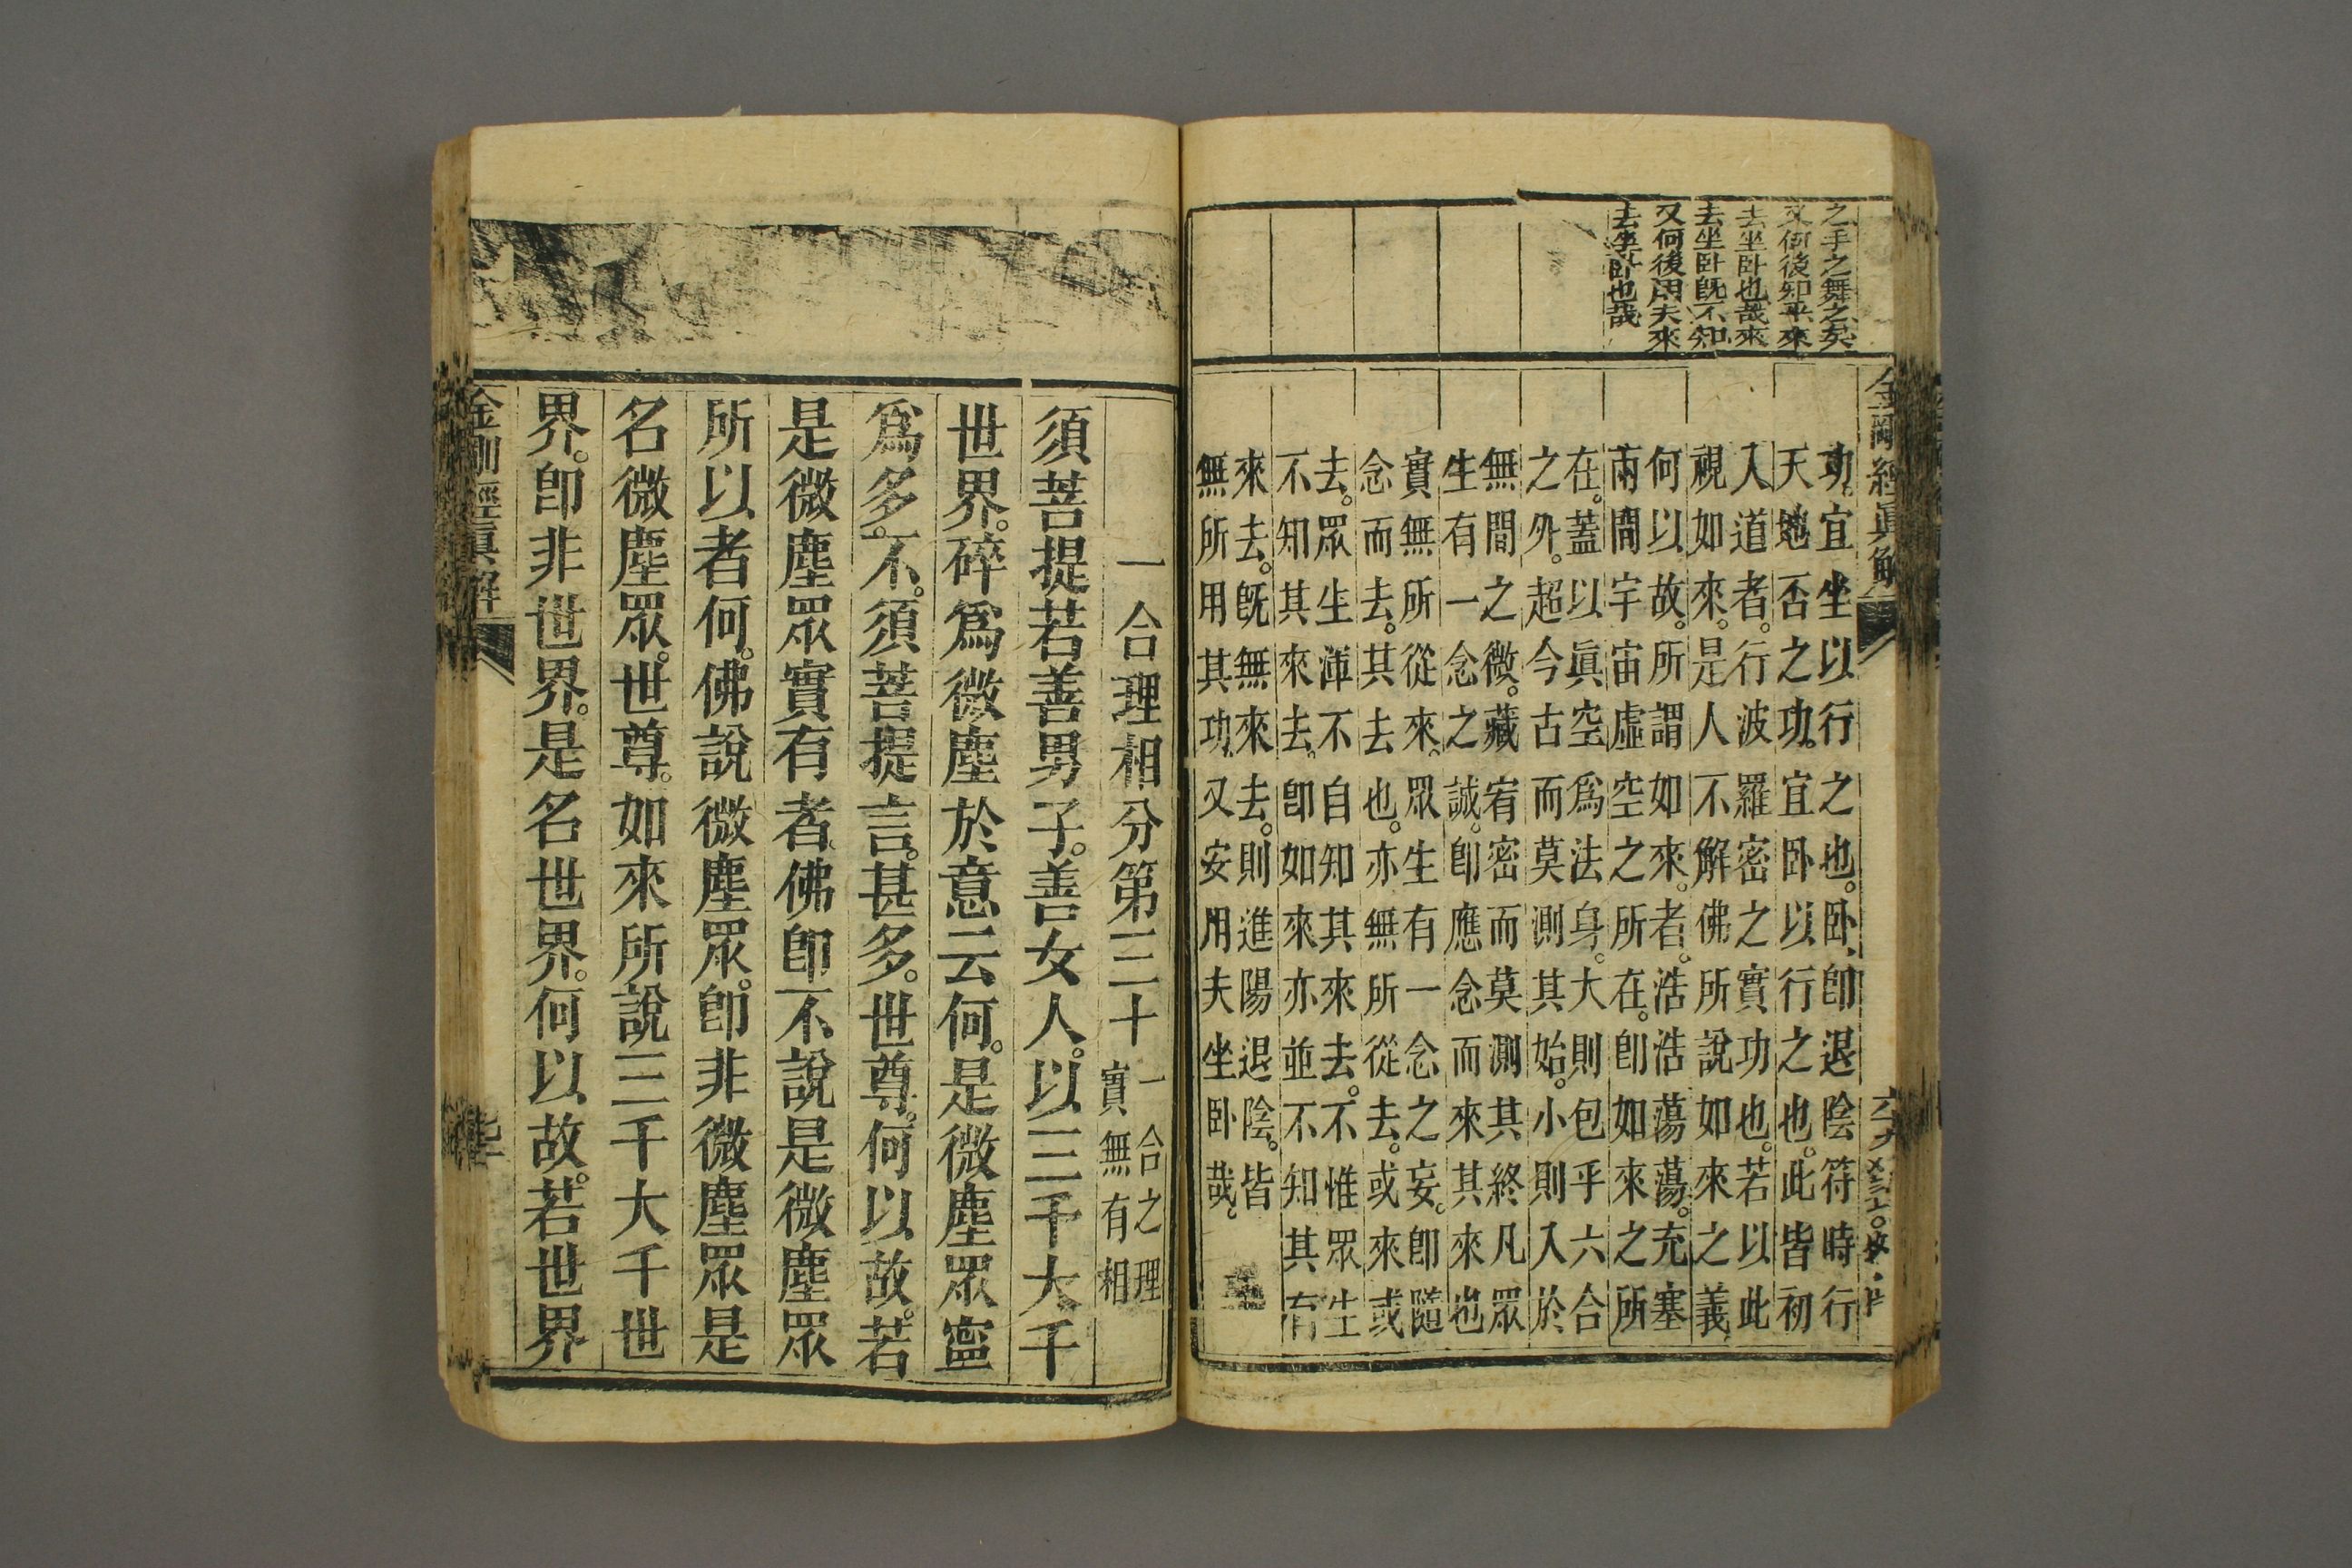 之手之舞之矣
又何後知乎來
去坐卧也哉來
去坐卧既不知
又何後用夫來
去坐卧也哉
金剛經眞解
六九
功。宜坐以行之也。卧、卽退陰符時行
天地否之功。宜卧以行之也。此皆初
入道者。行波羅密之實功也。若以此
視如來。是人不解佛所說如來之義
何以故。所謂如來。者。浩浩蕩蕩。充塞
兩間宇宙虛空之所在。卽如來之所
在。蓋以眞空爲法身。大則包乎六合
之外。超今古而莫測其始。小則入於
無間之微。藏宥密而莫測其終凡眾
生有一念之誠。卽應念而來其來也
實無所從來。眾生有一念之妄。卽隨
念而去。其去也。亦無所從去。或來或
去。眾生渾不自知其來去。不惟眾生
不知其來去。卽如來亦並不知其有
來去。既無來去。則進陽退陰。皆
無所用其功又安用夫坐卧哉。
一合理相分第三十
一合之理
實無有相
須菩提若善男子。善女人。以三千大千
世界。碎爲微塵於意云何。是微塵眾寧
爲多。不。須菩提言。甚多。世尊。何以故。若
是微塵眾實有者佛卽不說是微塵眾
所以者何。佛說微塵眾。卽非微塵眾是
名微塵眾。世尊。如來所說三千大千世
界。卽非世界。是名世界。何以故。若世界
金剛經眞解